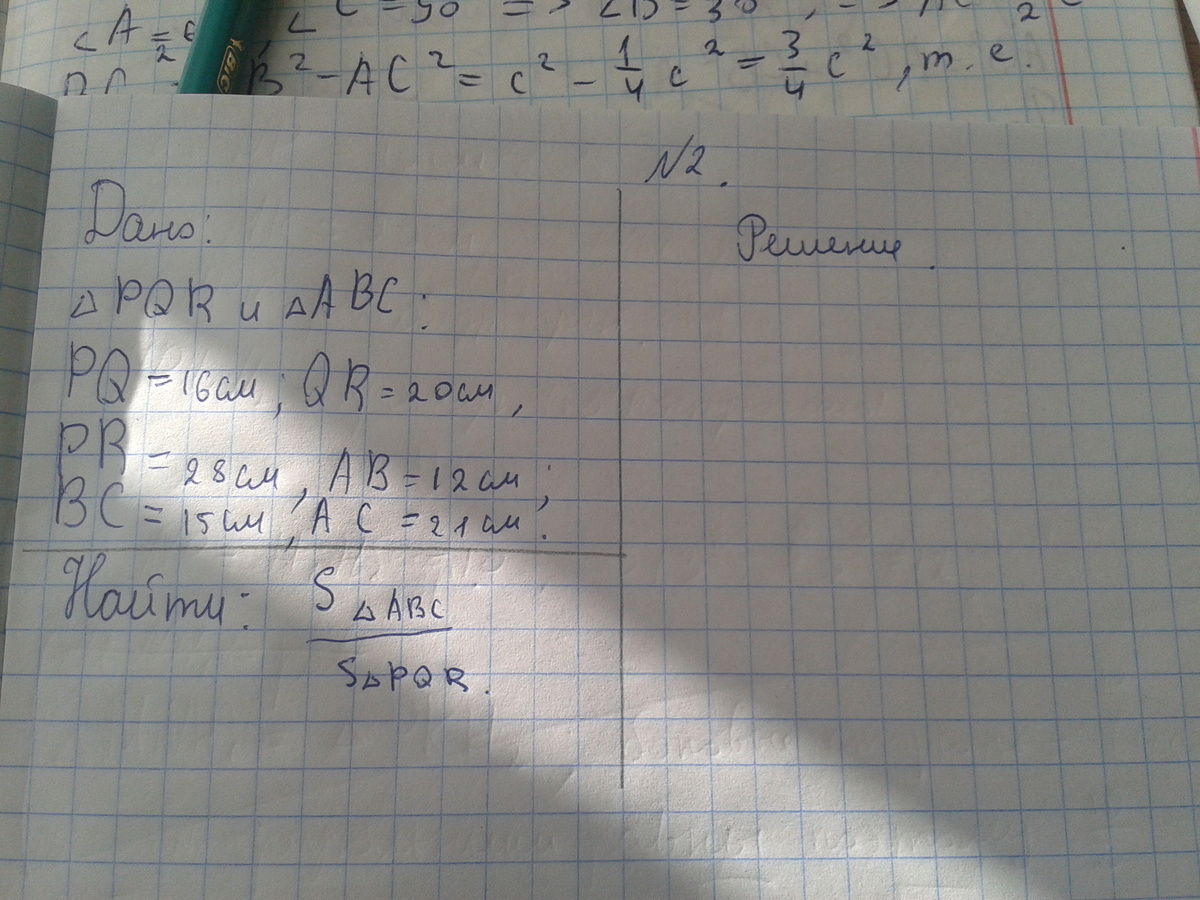 ∠A = 6 , ∠C = 90 => ∠B = 30 ,
B² - AC² = c² - 1/4 c² = 3/4 c², т. е.
N2.
Дано:
Решение.
△PQR и △ABC:
PQ = 16 см; QR = 20 см,
PR = 28 см, AB = 12 см;
BC = 15 см, AC = 21 см.
Найти: S△ABC
S△PQR.